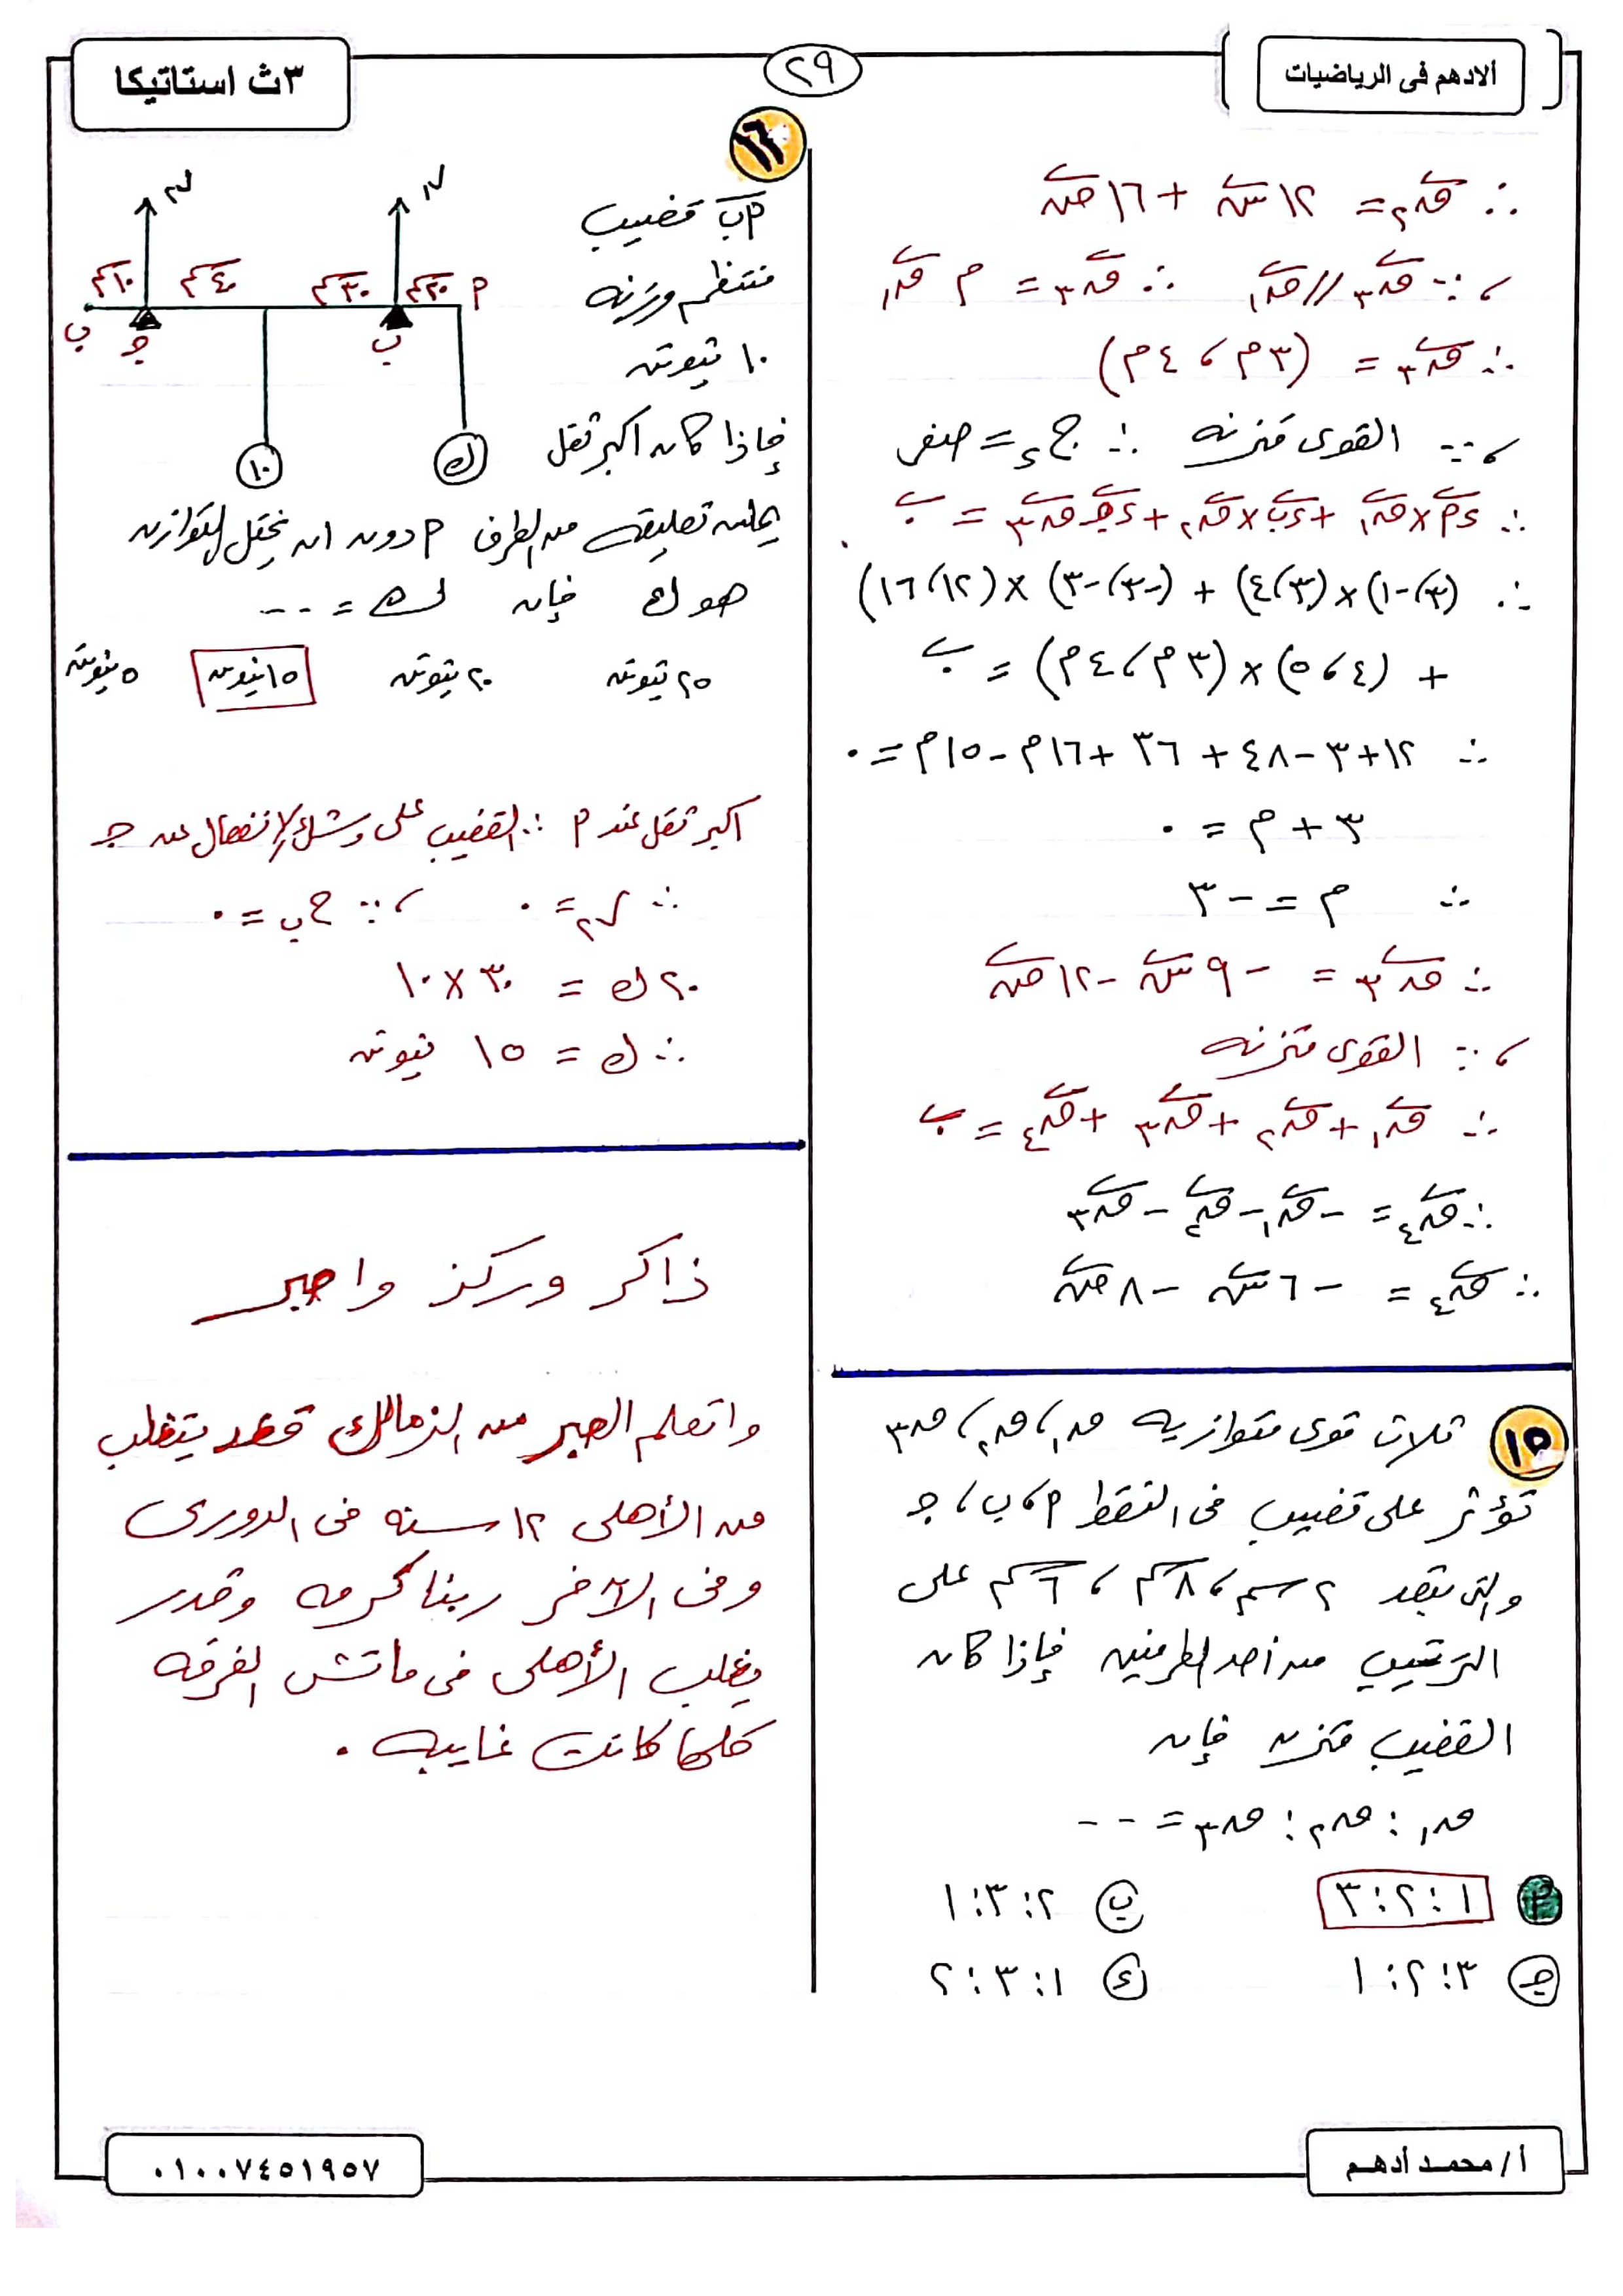 ألادهم فى الرياضيات
٢٩
٣ث استاتيكا
∴ ق٢ = ١٢ س + ١٦ ص
، ∵ ق٣ // ق١ ∴ ق٣ = م ق١
∴ ق٣ = (٣م ، ٤م)
، ∵ القوى متزنه ∴ ج د = صفر
∴ د أ × ق١ + د ب × ق٢ + د جـ × ق٣ = ٠
∴ (٣ ، -١) × (٣ ، ٤) + (-٣ ، -٣) × (١٢ ، ١٦)
+ (٤ ، ٥) × (٣م ، ٤م) = ٠
∴ ١٢ + ٣ - ٤٨ + ٣٦ + ١٦م - ١٥م = ٠
٣ + م = ٠
∴ م = - ٣
∴ ق٣ = - ٩ س - ١٢ ص
، ∵ القوى متزنه
∴ ق١ + ق٢ + ق٣ + ق٤ = ٠
∴ ق٤ = - ق١ - ق٢ - ق٣
∴ ق٤ = - ٦ س - ٨ ص
١٥
ثلاث قوى متوازيه ق١ ، ق٢ ، ق٣
تؤثر على قضيب فى النقط أ ، ب ، جـ
والتى تبعد ٢ سم ، ٨ سم ، ٦ سم على
الترتيب من أحد الطرفين فإذا كان
القضيب متزن فإن
ق١ : ق٢ : ق٣ = - - -
أ ١ : ٢ : ٣
ب ٢ : ٣ : ١
جـ ٣ : ٢ : ١
د ١ : ٣ : ٢
١٦
أ ب قضيب
منتظم وزنه
١٠ نيوتن
فإذا كان اكبر ثقل
يمكن تعليقه من الطرف أ دون ان يختل التوازن
هو ك فإن ك = - - -
٢٥ نيوتن
٢٠ نيوتن
١٥ نيوتن
٥ نيوتن
ر٢
ر١
١٠ سم
٤٠ سم
٣٠ سم
٢٠ سم
أ
ب
جـ
ب
١٠
ك
اكبر ثقل عند أ ∴ القضيب على وشك الإنفصال عن جـ
∴ ر٢ = ٠ ، ∵ ج ب = ٠
٢٠ ك = ٣٠ × ١٠
∴ ك = ١٥ نيوتن
ذاكر وركز واصبر
واتعلم الصبر من الزمالك قعد يتغلب
من الأهلى ١٢ سنه فى الدورى
وفى الآخر ربنا كرمه وقدر
يغلب الأهلى فى ماتش الفرقه
كلها كانت غايبه .
أ / محمد أدهم
٠١٠٠٧٤٥١٩٥٧